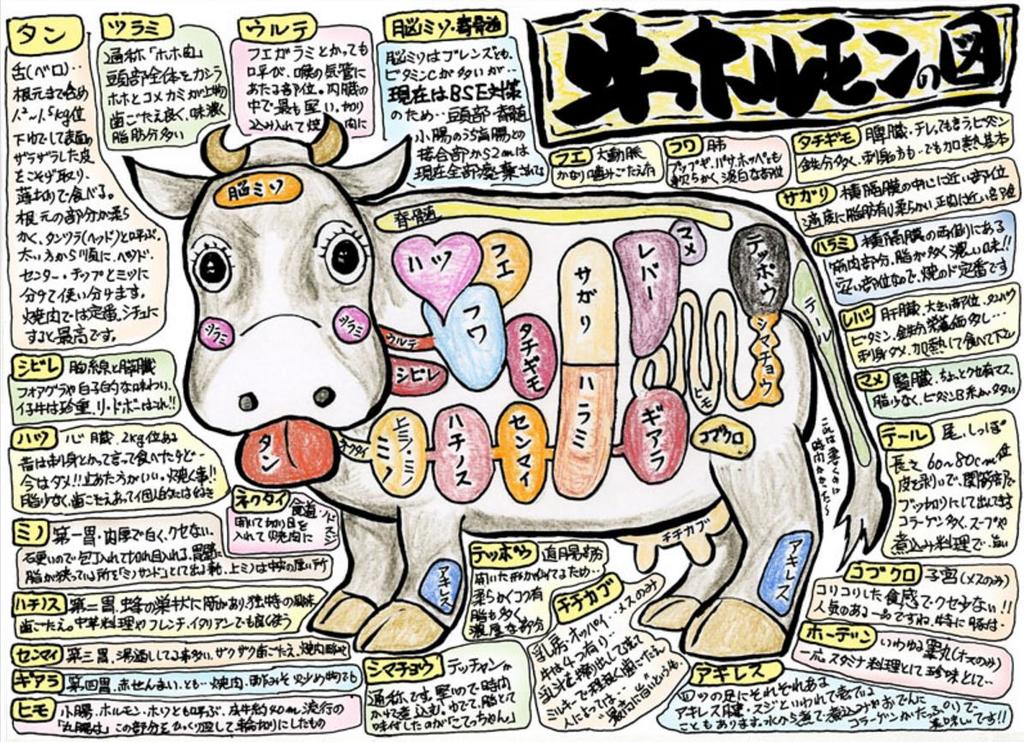 牛ホルモンの図
タン
舌(ベロ)…
根元まで含め
1.2〜1.5kg位
下ゆでして表面の
ザラザラした皮
をこそげ取り、
薄切りで食べる。
根元の部分が柔ら
かく、タンツラ(ヘッド)と呼ぶ。
太い方から順に、ヘッド・
センター・チップと三ツに
分けて使い分けます。
焼肉では定番、シチュに
すると最高です。
ツラミ
通称「ホホ肉」
頭部全体をカシラ
ホホとコメカミが上物
歯ごたえ良く、味濃く
脂肪分多い
ウルテ
フエガラミとかっても
呼び、喉の気管に
あたる部位。内臓の
中で最も堅い。切り
込み入れて焼肉に
脳ミソ・脊髄
脳ミソはブレンズとも、
ビタミンCが多いが…
現在はBSE対策
のため…頭部・脊髄
小腸の55歳腸との
接合部から2mは
現在全部廃棄されて
フエ 大動脈
かなり噛みごたえ有
フワ 肺
プップギ、バサ、ホッペとも
軟らかく、淡白な部位
タチギモ 脾臓、チレ、とも言うビタミン
鉄分多く、刺身の方も…でも加熱基本
サガリ 横隔膜の中心に近い部位
適度に脂肪有り柔らかい正肉に近い部位
ハラミ 横隔膜の両側にある
筋肉部分、脂が多く濃い味!!
堅い部位なので、焼の定番です
レバー 肝臓、大きい部位、タンパク
ビタミン、鉄分栄養価多し…
刺身ダメ、加熱して食べて下さい
マメ 腎臓、ちょっとクセ有マス
脂少なく、ビタミンB系が多い
テール 尾、しっぽ
長さ60〜80cm位
皮を剥いで、関節部で
ブッ切りにして出します
コラーゲン多く、スープや
煮込み料理で、旨い
コブクロ 子宮(メスのみ)
コリコリした食感でクセ少ない!!
人気のある一品ですね、特に豚は…
ホーデン いわゆる睾丸(オスのみ)
一応スタミナ料理として珍味とて…
アキレス
四ツの足にそれぞれある
アキレス腱・スジといわれて居ては
こともあります。水から煮て、煮込みやおでんに
コラーゲンがたっぷりで
美味しいです!!
シビレ 胸線と膵臓
フォアグラや白子的な味わい。
仔牛は珍重、リ・ド・ボーはこれ!!
ハツ 心臓、2kg位ある
昔は刺身とかって言って食べたけど…
今はダメ!!止めた方がいい・焼く事!!
脂少なく、歯ごたえあって個人的には好き
ネクタイ 食道・ノドスジ
開いて切り目を
入れて焼肉に
ミノ 第一胃、肉厚で白く、クセない。
石更いので包丁入れて切れ目入れる、胃壁に
脂が挟っている所を「ミノサンド」として出る事、上ミノは中央の厚い所
ハチノス 第二胃、蜂の巣状に筋があり、独特の風味
歯ごたえ。中華料理やフレンチ、イタリアンでも良く使う
センマイ 第三胃、湯通ししてる事多い、ザクザク歯ごたえ、焼肉
ギアラ 第四胃、赤せんまい、とも…焼肉、酢みそ 炒め物でも
ヒモ 小腸、ホルモン・ホソとも呼ぶ、成牛約40m 流行の
「丸腸」は この部分をひっくり返して輪切りにしたもの
テッポウ 直腸部
開いた形が似てるため…
柔らかくコク有
脂も多く、
濃厚な部分
チチカブ
乳房、オッパイ…メスのみ
牛は4つ有り…
乳汁を搾り出して居て
ミルキーで独特な歯ごたえ
人によっては…
"最高に旨いという"
シマチョウ テッチャンが
通称です。堅いので時間
かけて煮込む。ゆでて、脂とて
味付したのが「こてっちゃん」
脳ミソ
脊髄
ツラミ
ツラミ
ハツ
フエ
フワ
サガリ
レバー
マメ
テッポウ
テール
シマチョウ
ウルテ
シビレ
タチギモ
ハラミ
ヒモ
タン
ネクタイ
上ミノ・ミノ
ハチノス
センマイ
ギアラ
コブクロ
チチカブ
アキレス
アキレス
これは書くのに
時間かかった〜